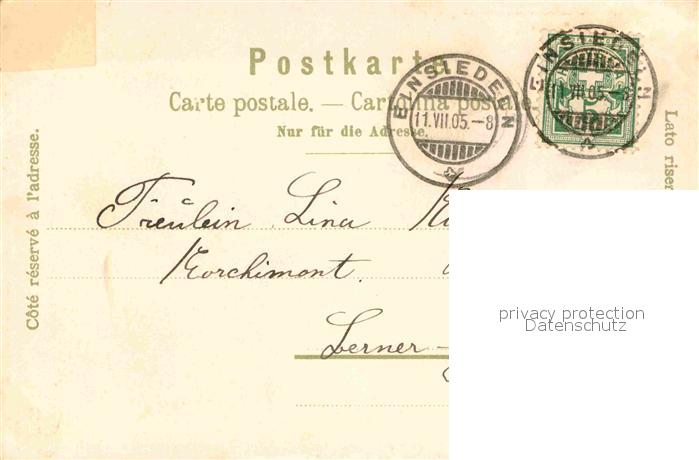 Postkarte
Carte postale. — Cartolina postale.
Nur für die Adresse.
EINSIEDELN
11.VII.05.-8
EINSIEDELN
11.VII.05.-8
Côté réservé à l'adresse.
Lato riser
Fräulein Lina
privacy protection
Datenschutz